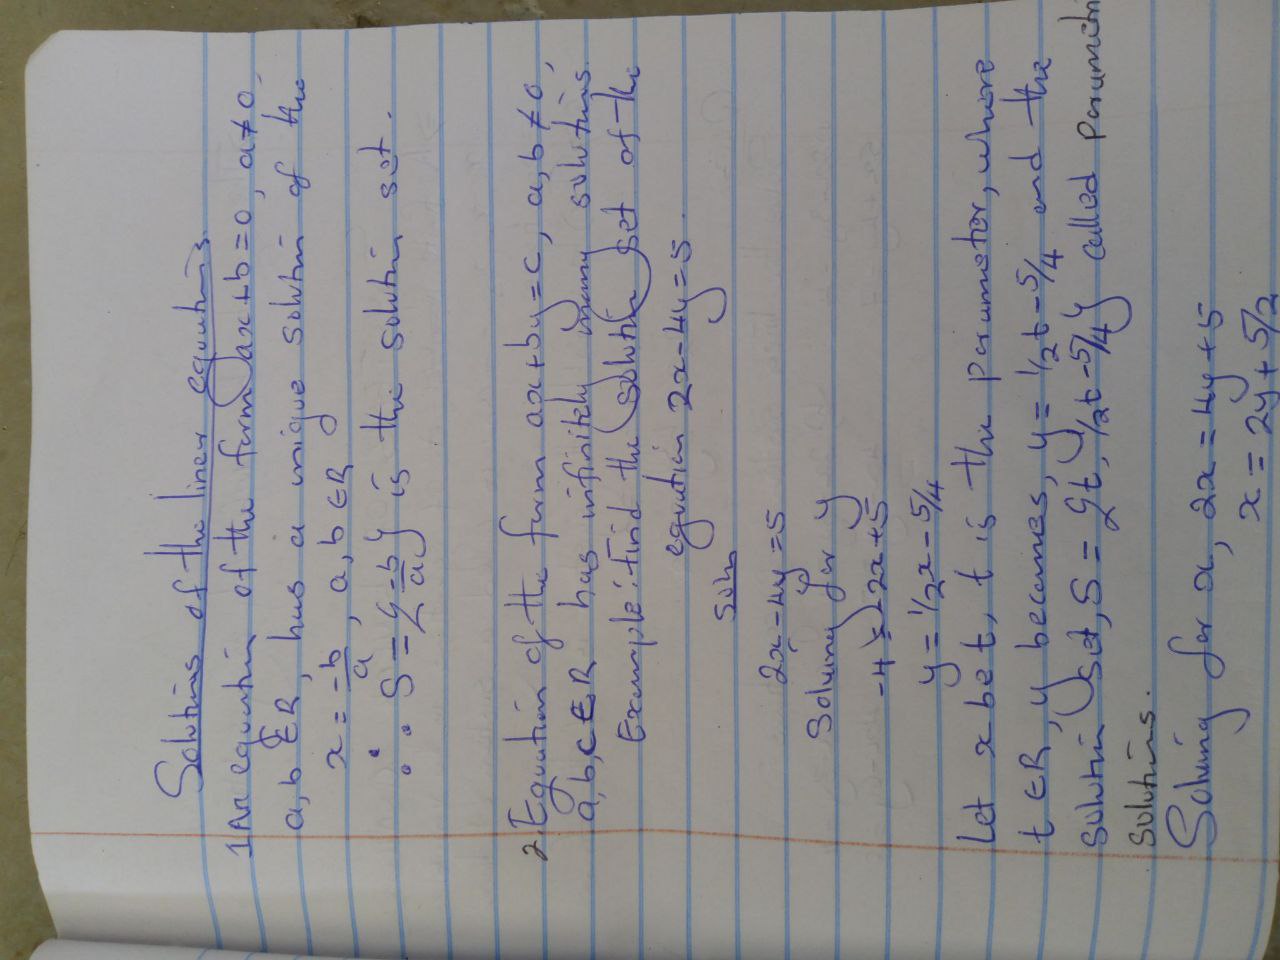 Solutions of the linear equations.
1 An equation of the form ax+b=0, a≠0,
a,b ∈R, has a unique solution of the
x = -b/a, a,b ∈R
∴ S={-b/a} is the solution set.
2. Equation of the form ax+by=c, a,b ≠0,
a,b,c ∈R has infinitely many solutions.
Example: find the solution set of the
equation 2x-4y=5.
Soln
2x-4y=5
Solving for y
-4 = -2x+5
y = 1/2x - 5/4
Let x be t, t is the parameter, where
t ∈R, y becomes, y = 1/2t - 5/4 and the
solution set, S = {t, 1/2t - 5/4} called parametri
solutions.
Solving for x, 2x = 4y+5
x = 2y+5/2